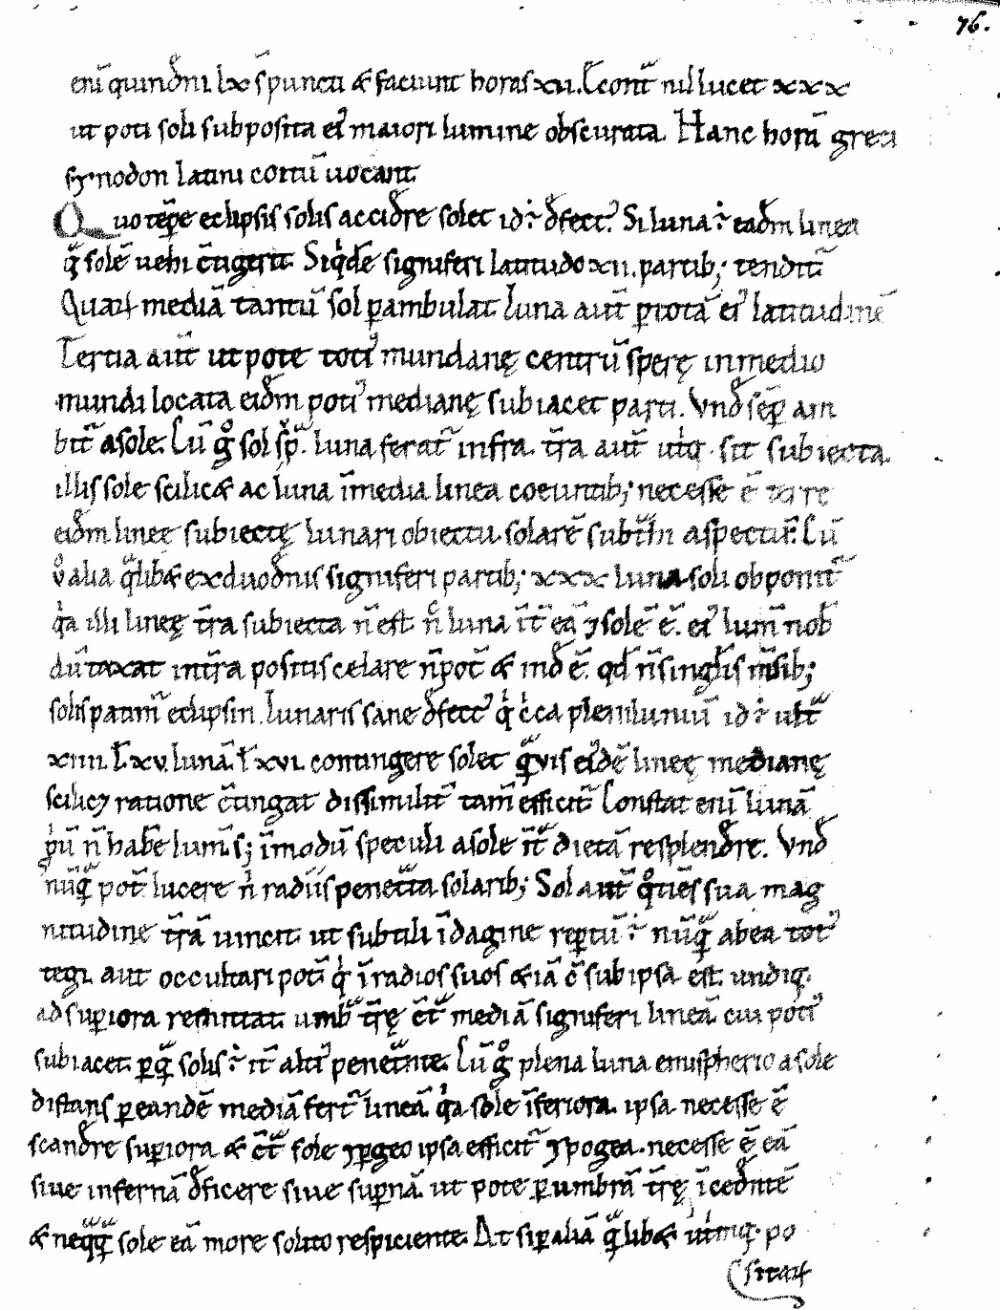 76.
enī quindēni lx s̄ puncti & faciunt horas xii. Cont̄ nil lucet xxx
ut poti soli subposita ei' maiori lumine obscurata. Hanc horā greci
synodon latini coitū uocant.
Quo tēpe eclipsis solis accidere solet id ē defect'. Si luna ē eadm linea
q̄ solē uehi c̄tigerit. Siq̇dē signiferi latitudo xii. partib; tendit̄
Quaꝝ mediā tantū sol ꝑambulat luna aut̄ ꝑ totā ei' latitudinē
Tertia aut̄ utpote toti' mundanę centrū sperę in medio
mundi locata eidm poti' medianę subiacet parti. Vnd sēp am
bit̄ a sole. Cū g° sol sup̄. luna ferat̄ infra. t̄ra aut̄ utq̇ sit subiecta
illis sole scilic& ac luna ī media linea coeuntib; necesse ē terre
eidm lineę subiectę lunari obiectu solarē subt̄hi aspectū. Cū
v° alia q̄lib& ex duodenis signiferi partib; xxx luna soli obponit̄
q̇a illi lineę t̄ra subiecta n̄ est n̄ luna īt̄ eā ⁊ solē ē. ei' lum̄ nob
dūtaxat int̄ra positis celare n̄ pot̄ & ind ē. qd n̄ singlis m̄sib;
solis patim̄ eclipsin. Lunaris sane defect' q̇ ċca pleniluniū id ē ult̄
xiiii. ł xv. lunā. ł xvi. contingere solet q̄uis ei'dē lineę medianę
scilic⁊ ratione c̄tingat dissimilit̄ tam̄ efficit̄ Constat enī lunā
pⁱū n̄ habe lum̄ s; ī modū speculi a sole īt̄ dietā resplendere. Vnd
nūq̄ pot̄ lucere nⁱ radiis penet̄ta solarib; Sol aut̄ q°tiēs sua mag
nitudine t̄rā uincit ut subtili īdagine reꝑtū ē nūq̄ ab ea tot'
tegi. aut occultari poti q̇ ī radios suos & iā c̄ sub ipsa est undiq;
ad suꝑiora remittat. umb̄ t̄rę c̄t̄ mediā signiferi lineā cui poti'
subiacet. ꝑ q̄ solis ē it̄ alti' penet̄nte. Cū g° plena luna emispherio a sole
distans ꝑ eandē mediā fert̄ lineā. q̇a sole īferiora. ipsa necesse ē
scandre suꝑiora & c̄t̄ sole yꝑgeo ipsa efficit̄ ypogea. necesse ē eā
siue infernā deficere siue supernā. ut pote ꝑ umbrā t̄rę īcedntē
& neq̄q̄ sole eā more solito respiciente. At si ꝑ aliā q̄lib& utrīq; po
sitaꝝ